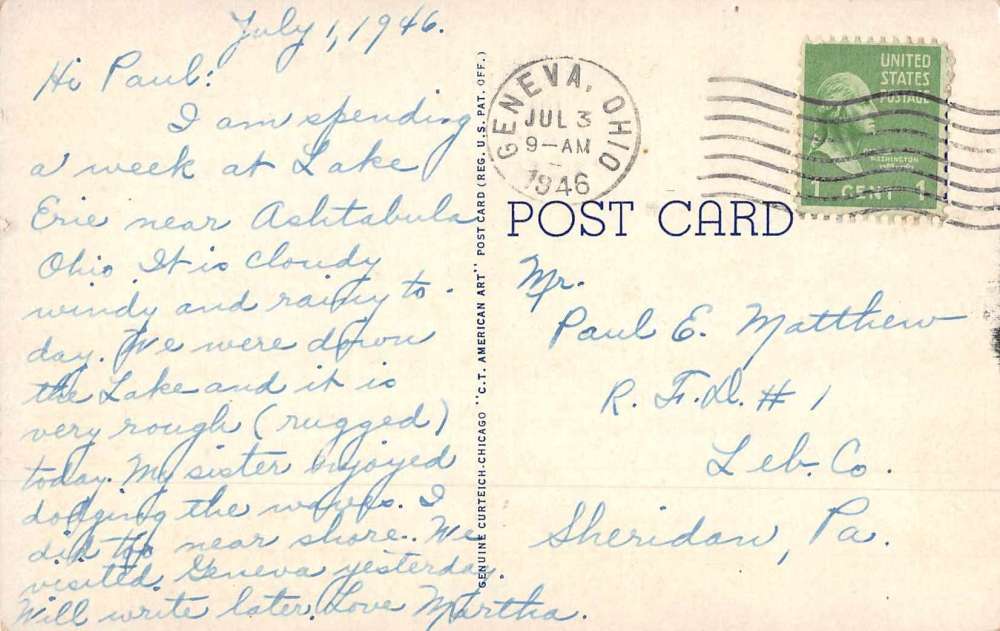 July 1, 1946.
Hi Paul:
I am spending
a week at Lake
Erie near Ashtabula
Ohio It is cloudy
windy and rainy to-
day. We were down
the Lake and it is
very rough (rugged)
today. My sister enjoyed
dodging the waves. I
did too near shore. We
visited Geneva yesterday.
Will write later. Love Martha.
GENUINE CURTEICH-CHICAGO "C.T. AMERICAN ART" POST CARD (REG. U.S. PAT. OFF.)
GENEVA, OHIO
JUL 3
9-AM
1946
UNITED
STATES
POSTAGE
WASHINGTON
1 CENT 1
POST CARD
Mr.
Paul E. Matthew
R. F. D. # 1
Leb. Co.
Sheridan, Pa.